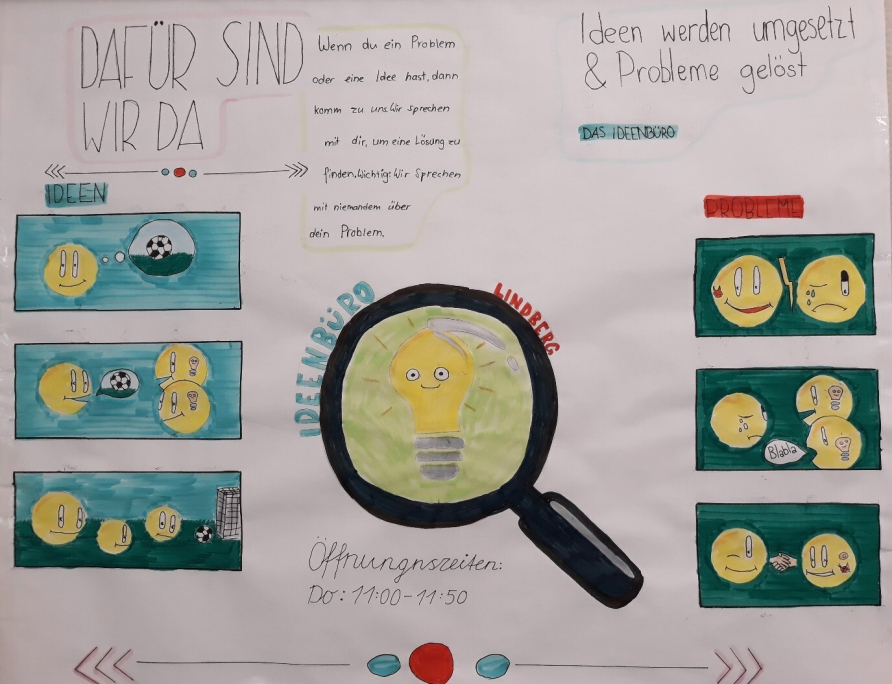 DAFÜR SIND
WIR DA
Wenn du ein Problem
oder eine Idee hast, dann
komm zu uns. Wir sprechen
mit dir, um eine Lösung zu
finden. Wichtig: Wir sprechen
mit niemandem über
dein Problem.
Ideen werden umgesetzt
& Probleme gelöst
DAS IDEENBÜRO
IDEEN
PROBLEME
IDEENBÜRO
LINDBERG
Blabla
Öffnungnszeiten:
Do: 11:00-11:50